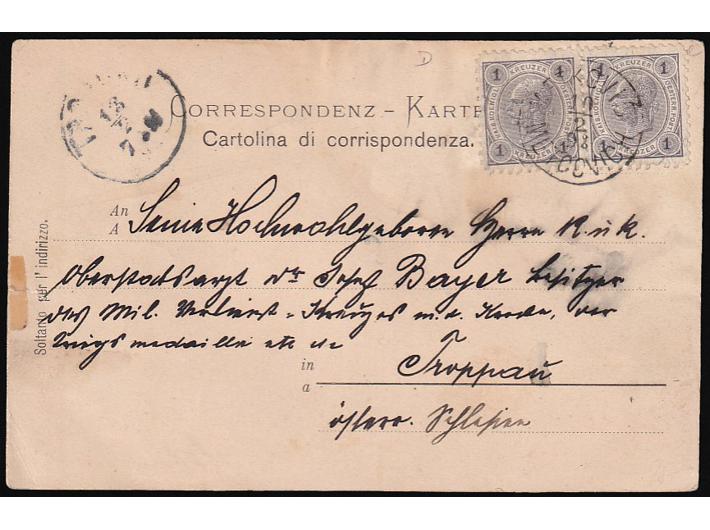 CORRESPONDENZ – KARTE
Cartolina di corrispondenza.
TROPPAU
KREUZER
1 1 1 1
KREUZER
1 1 1 1
An
A
Seine Hochwohlgeboren Herrn K. u. k.
Oberstabsarzt Dr Josef Bayer Besitzer
des Mil. Verdienst-Kreuzes m. d. Krone, der
Kriegsmedaille etc etc
in
a
Troppau
österr. Schlesien
Soltanto per l'indirizzo.